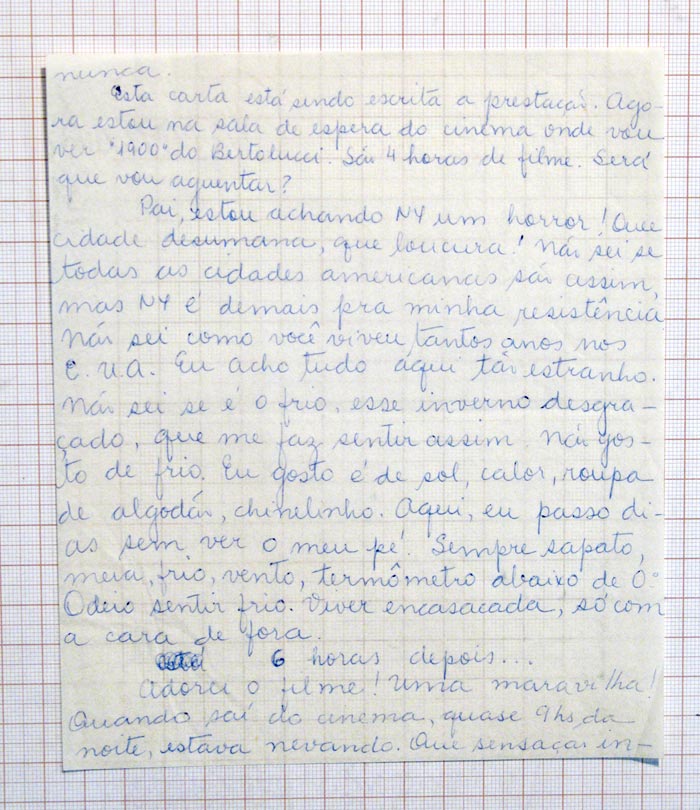 nunca.
Esta carta está sendo escrita a prestação. Ago-
ra estou na sala de espera do cinema onde vou
ver "1900" do Bertolucci. São 4 horas de filme. Será
que vou aguentar?
Pai, estou achando NY um horror! Que
cidade desumana, que loucura! Não sei se
todas as cidades americanas são assim,
mas NY é demais pra minha resistência
Não sei como você viveu tantos anos nos
E.U.A. Eu acho tudo aqui tão estranho.
Não sei se é o frio, esse inverno desgra-
çado, que me faz sentir assim. Não gos-
to de frio. Eu gosto é de sol, calor, roupa
de algodão, chinelinho. Aqui, eu passo di-
as sem ver o meu pé! Sempre sapato,
meia, frio, vento, termômetro abaixo de 0º
Odeio sentir frio. Viver encasacada, só com
a cara de fora.
6 horas depois...
Adorei o filme! Uma maravilha!
Quando saí do cinema, quase 9hs da
noite, estava nevando. Que sensação in-